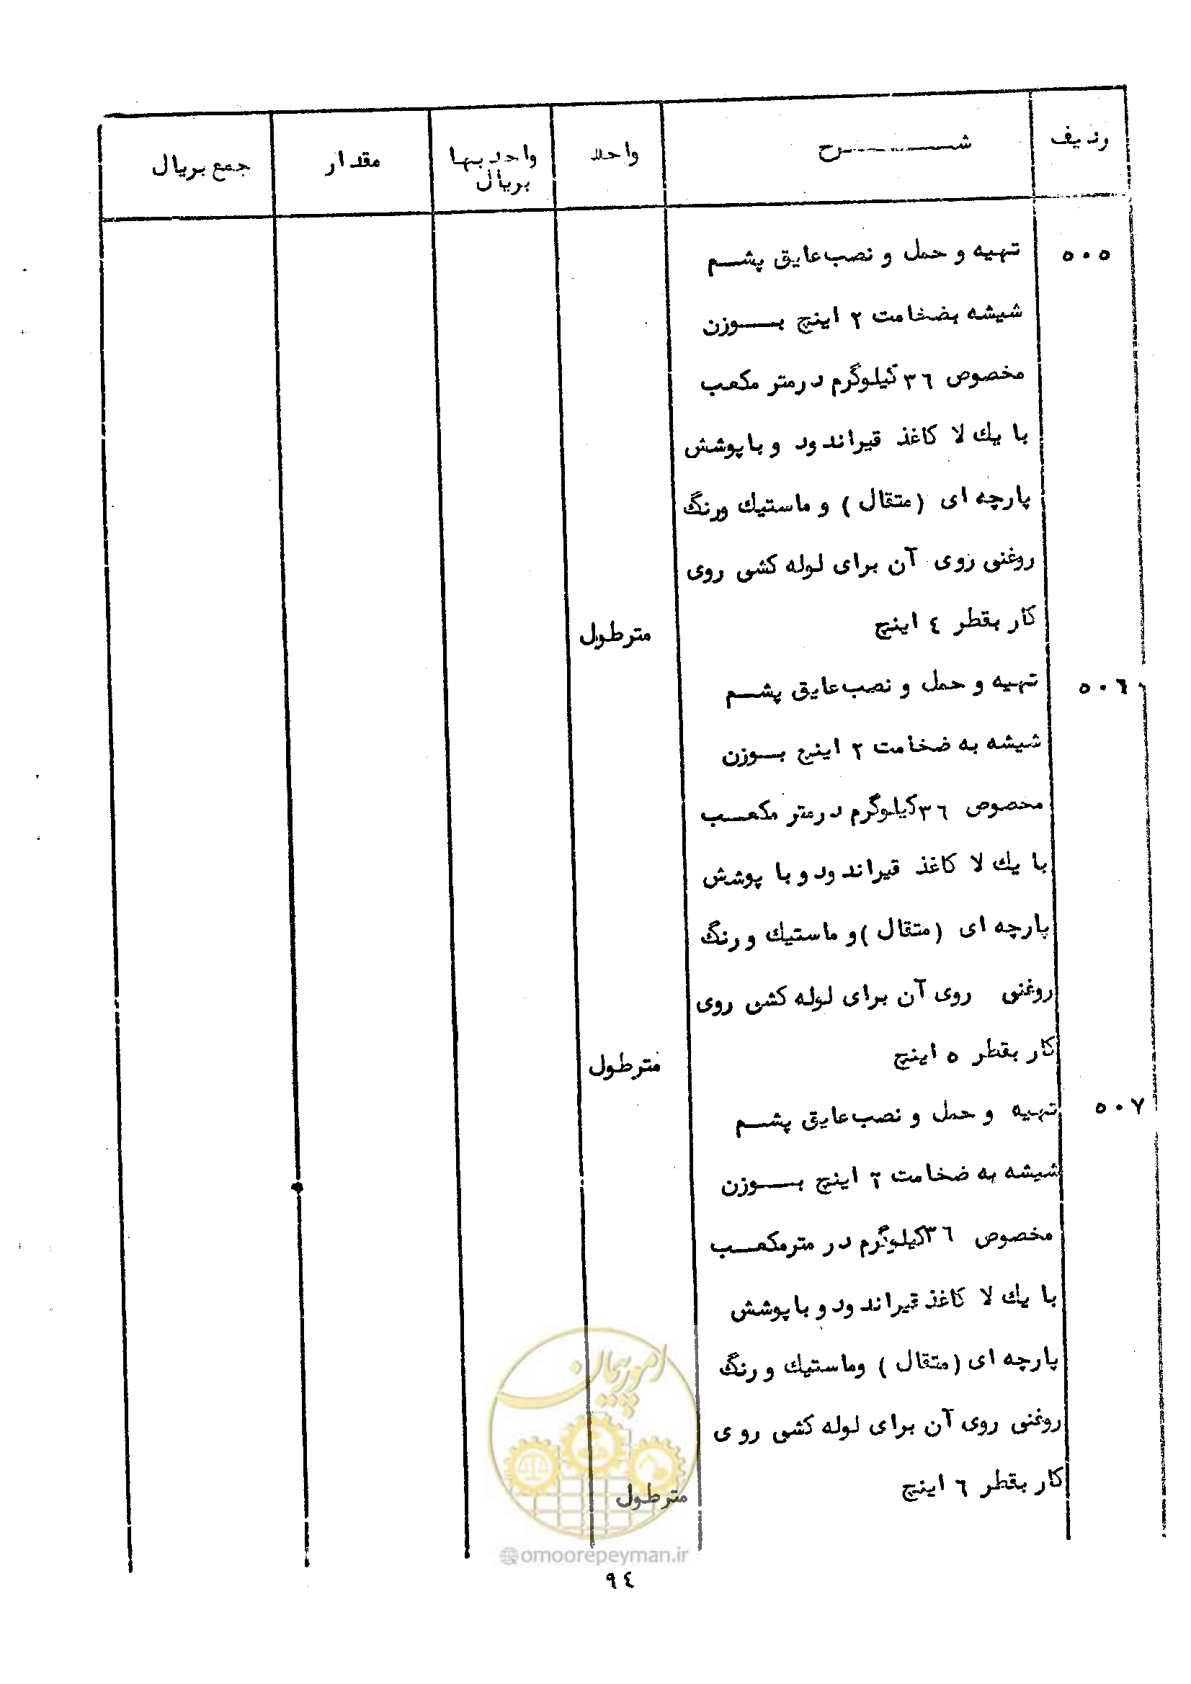 ردیف
شـــــــرح
واحد
واحد بها
بریال
مقدار
جمع بریال
۵۰۵
تهیه و حمل و نصب عایق پشـــم
شیشه بضخامت ۲ اینچ بـــوزن
مخصوص ۳٦ کیلوگرم درمتر مکعب
با یك لا کاغذ قیراندود و باپوشش
پارچه ای (متقال) و ماستیك ورنگ
روغنی روی آن برای لوله کشی روی
کار بقطر ٤ اینچ
مترطول
۵۰٦
تهیه و حمل و نصب عایق پشـــم
شیشه به ضخامت ۲ اینچ بـــوزن
مخصوص ۳٦ کیلوگرم درمتر مکعـــب
با یك لا کاغذ قیراندود و با پوشش
پارچه ای (متقال) و ماستیك و رنگ
روغنی روی آن برای لوله کشی روی
کار بقطر ۵ اینچ
مترطول
۵۰۷
تهیه و حمل و نصب عایق پشـــم
شیشه به ضخامت ۲ اینچ بـــوزن
مخصوص ۳٦ کیلوگرم در مترمکعـــب
با یك لا کاغذ قیراندود و باپوشش
پارچه ای (متقال) وماستیك و رنگ
روغنی روی آن برای لوله کشی روی
کار بقطر ٦ اینچ
مترطول
امور پیمان
@omoorepeyman.ir
۹٤